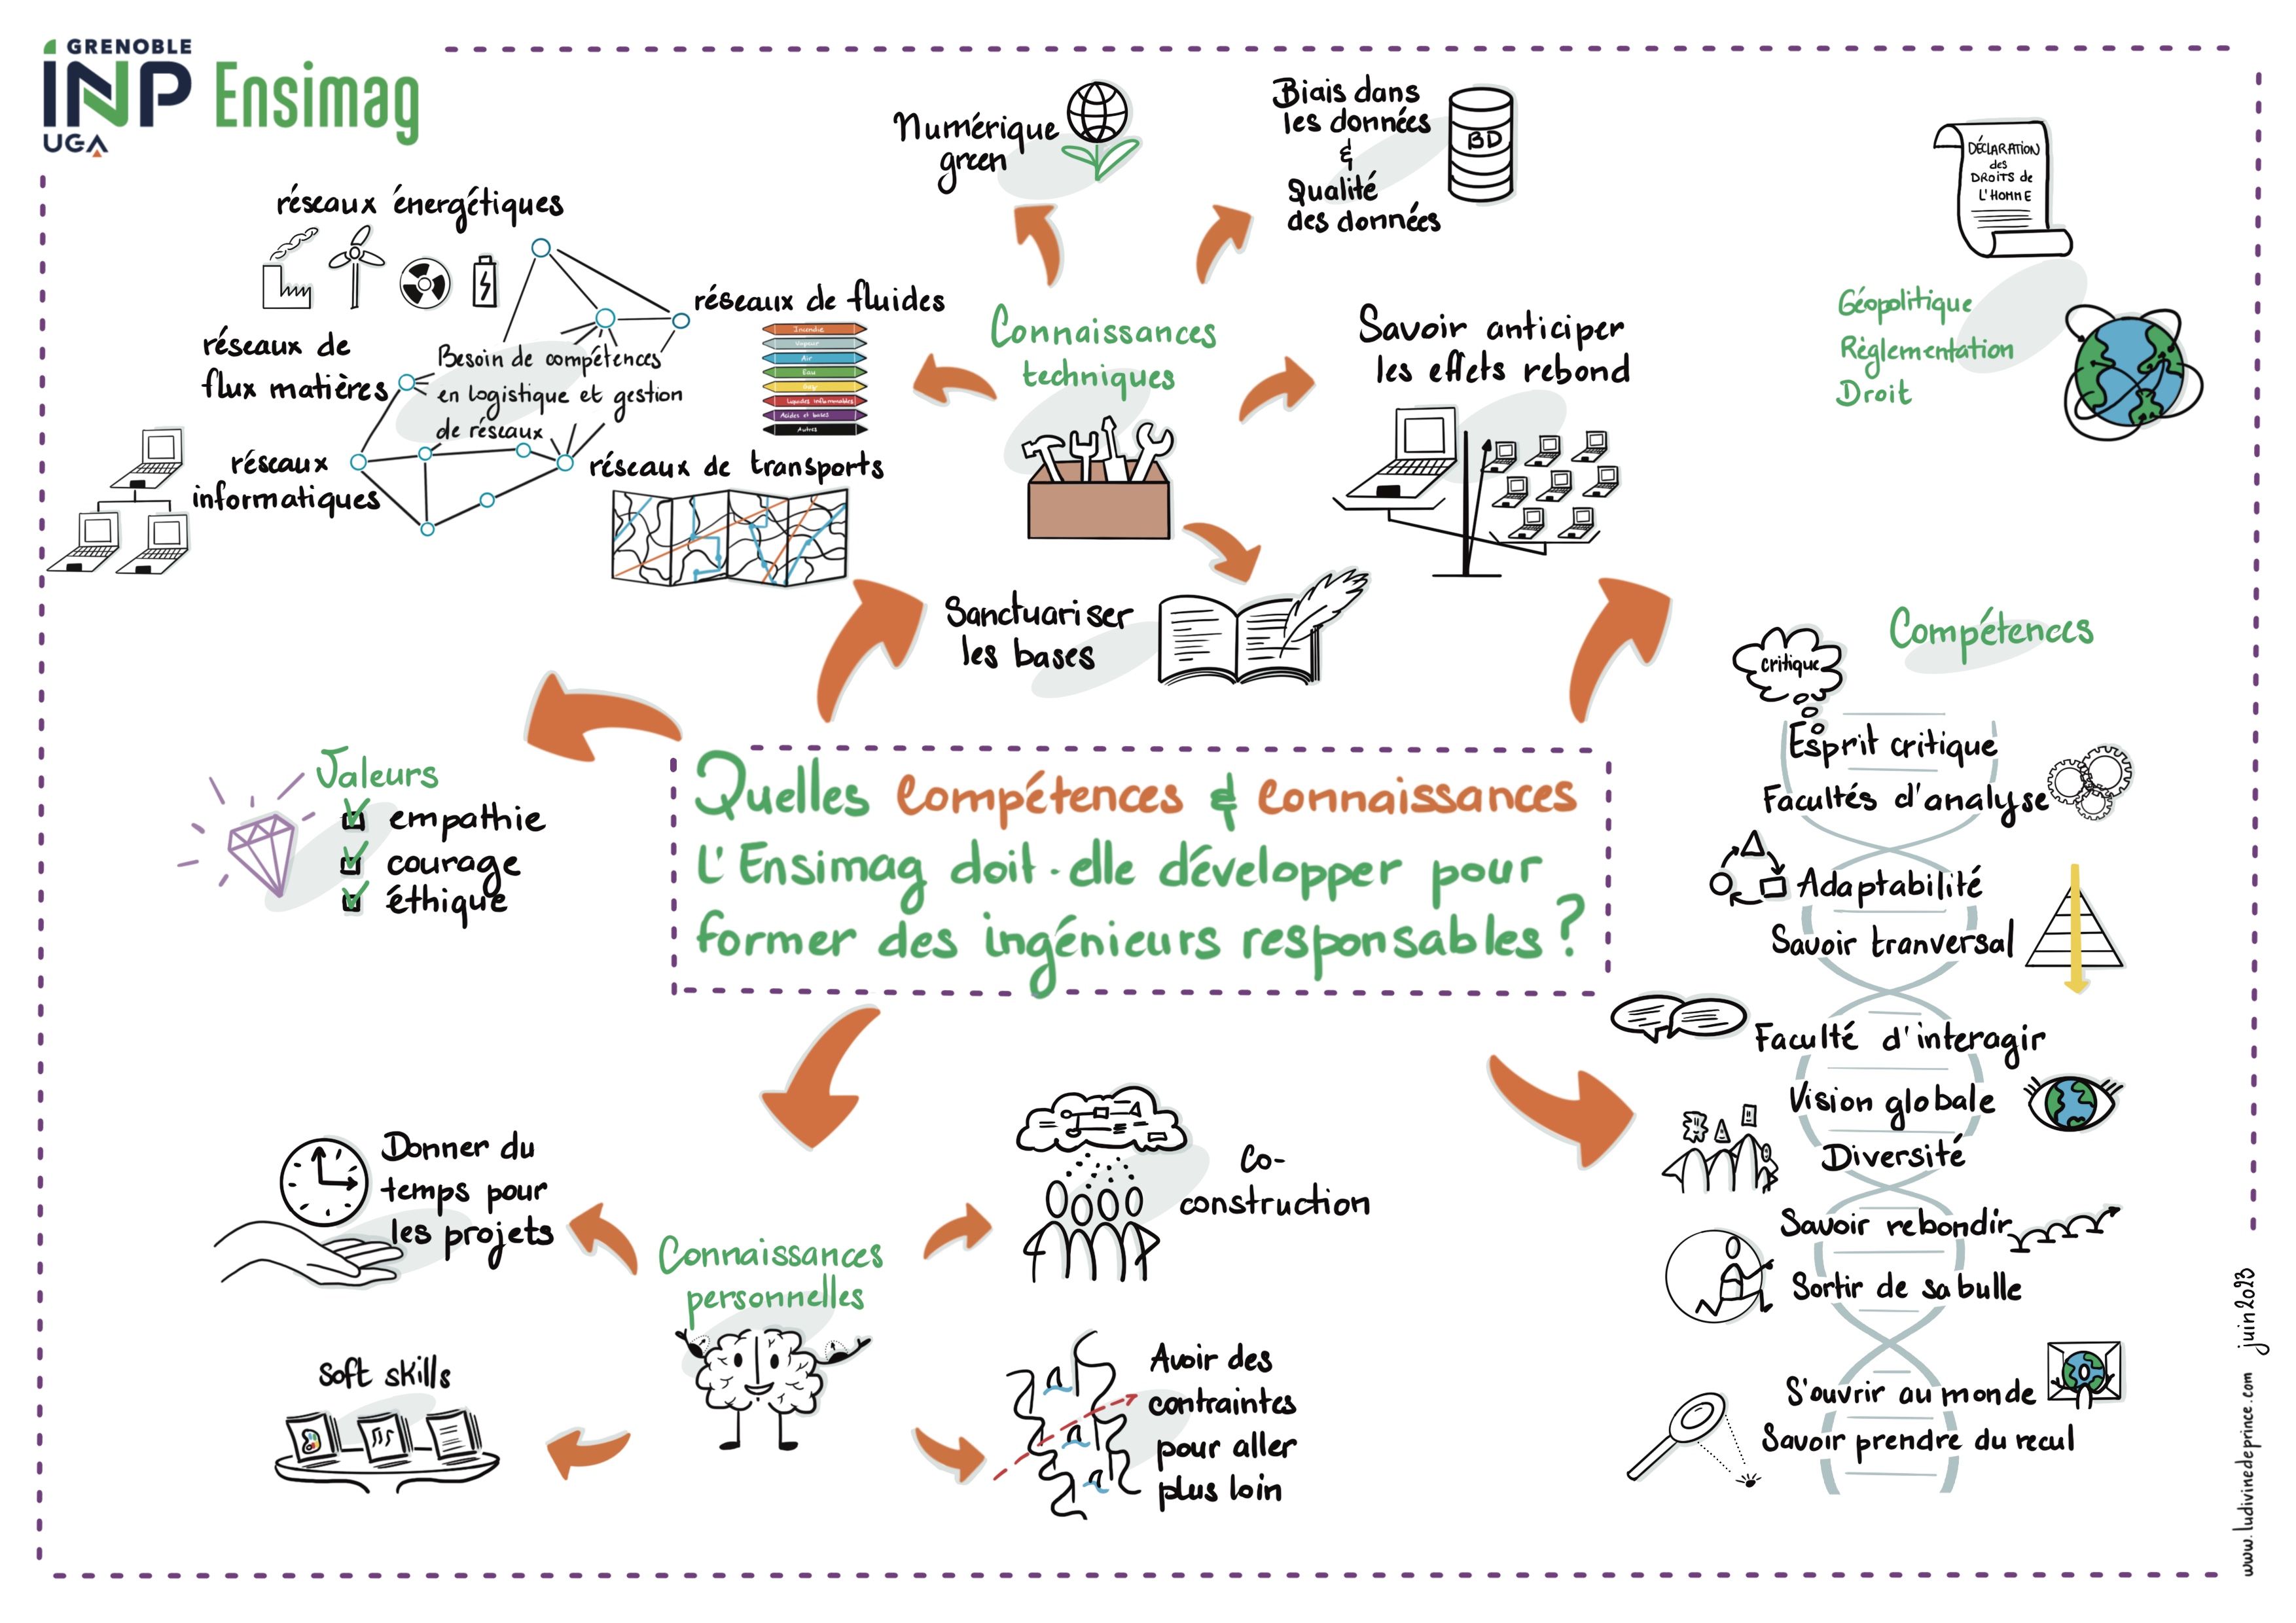 GRENOBLE
INP Ensimag
UGA
réseaux énergétiques
réseaux de
flux matières
réseaux
informatiques
Besoin de compétences
en logistique et gestion
de réseaux
réseaux de fluides
Incendie
Vapeur
Air
Eau
Gaz
Liquides inflammables
Acides et bases
Autres
réseaux de transports
Numérique
green
Biais dans
les données
&
Qualité
des données
BD
Connaissances
techniques
Savoir anticiper
les effets rebond
Sanctuariser
les bases
DÉCLARATION
des
DROITS de
L'HOMME
Géopolitique
Règlementation
Droit
Valeurs
empathie
courage
éthique
Quelles Compétences & Connaissances
L'Ensimag doit-elle développer pour
former des ingénieurs responsables ?
Compétences
critique
Esprit critique
Facultés d'analyse
Adaptabilité
Savoir tranversal
Faculté d'interagir
Vision globale
Diversité
Savoir rebondir
Sortir de sa bulle
S'ouvrir au monde
Savoir prendre du recul
Donner du
temps pour
les projets
Soft skills
Connaissances
personnelles
Co-
construction
Avoir des
contraintes
pour aller
plus loin
www.ludivinedeprince.com juin 2023